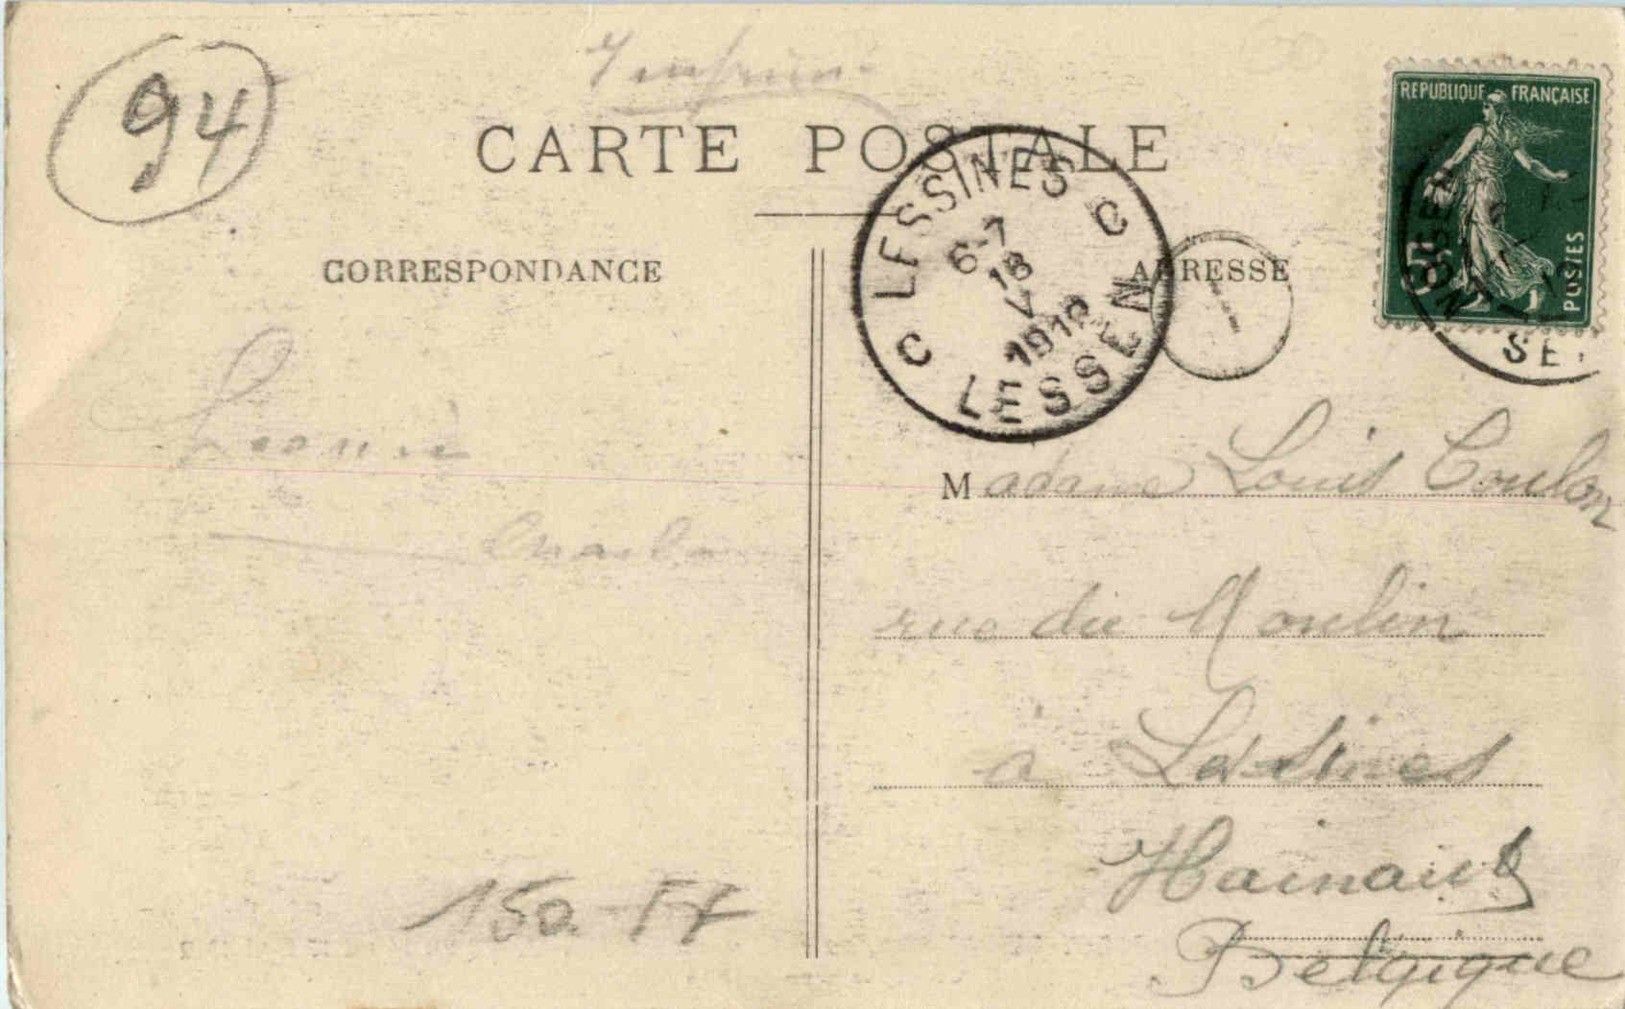 94
Imprimé
CARTE POSTALE
CORRESPONDANCE
ADRESSE
REPUBLIQUE FRANÇAISE
5c
POSTES
LESSINES C
6-7
18
V
LESSEN C
Madame Louis Coulon
rue du Moulin
à Lessines
Hainaut
Belgique
150 FF